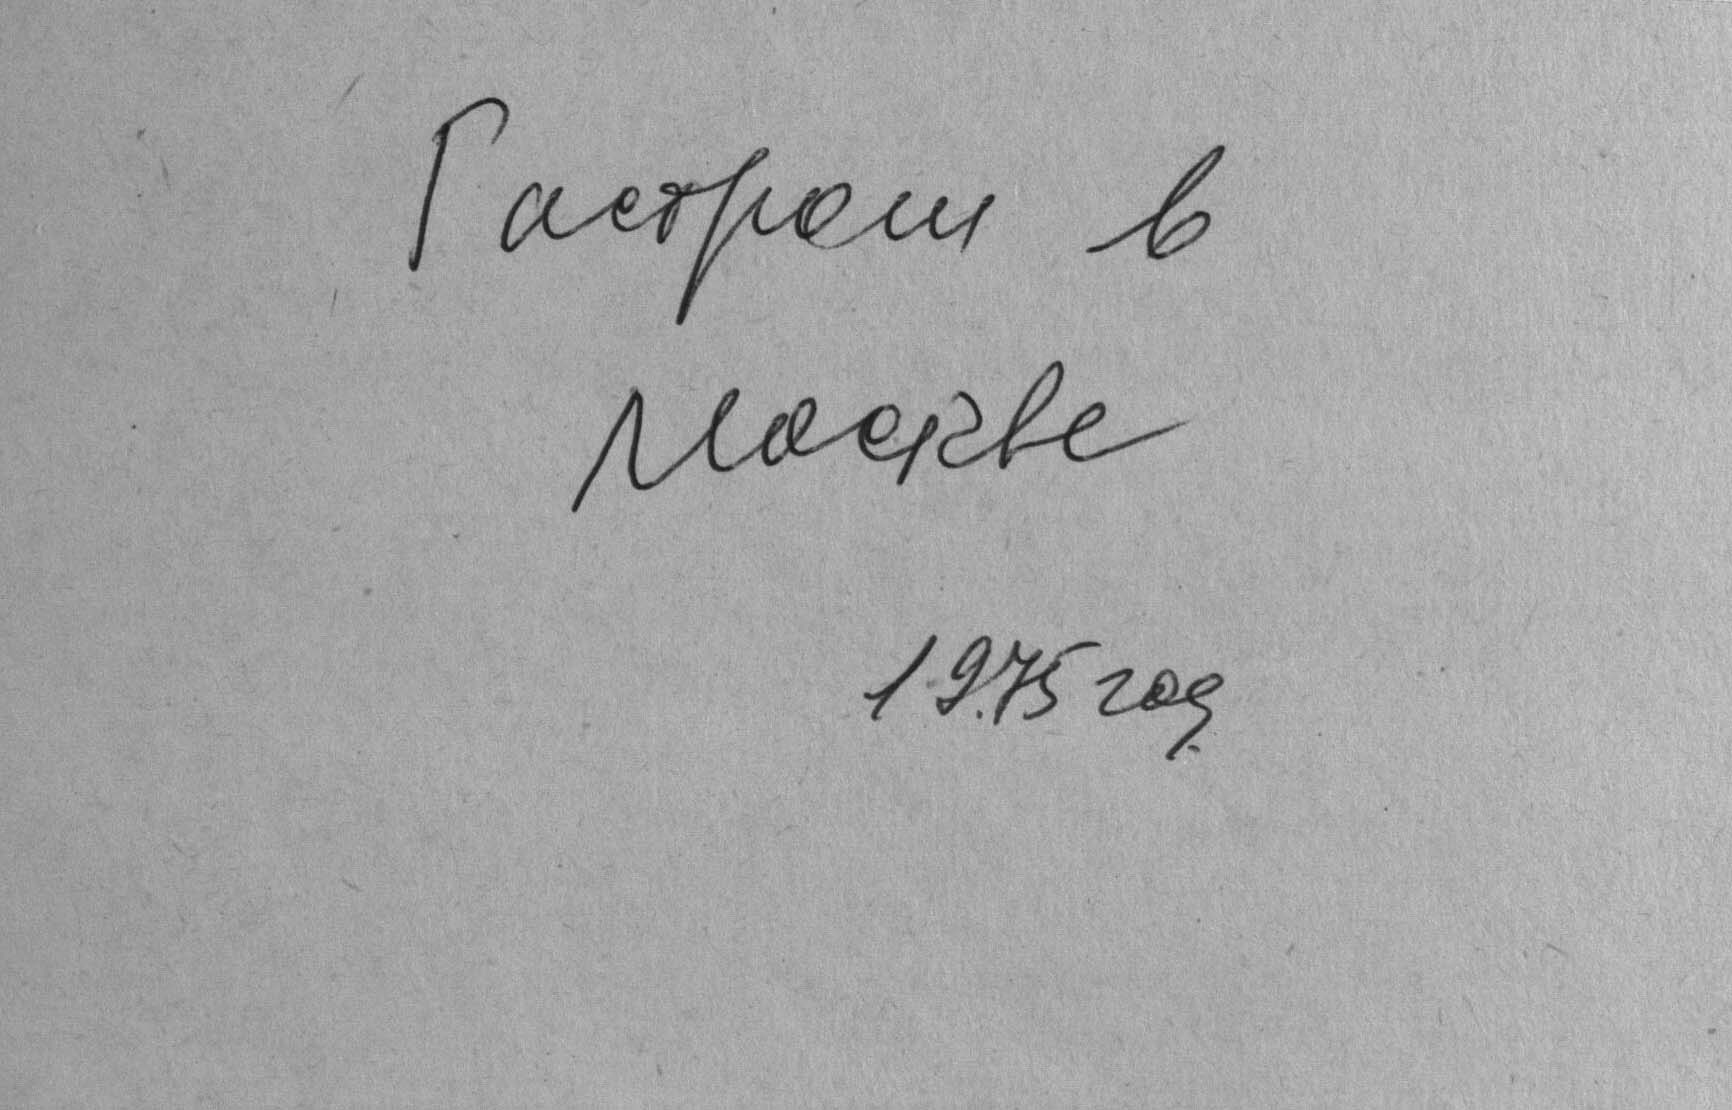 Гастроли в
Москве
1975 год